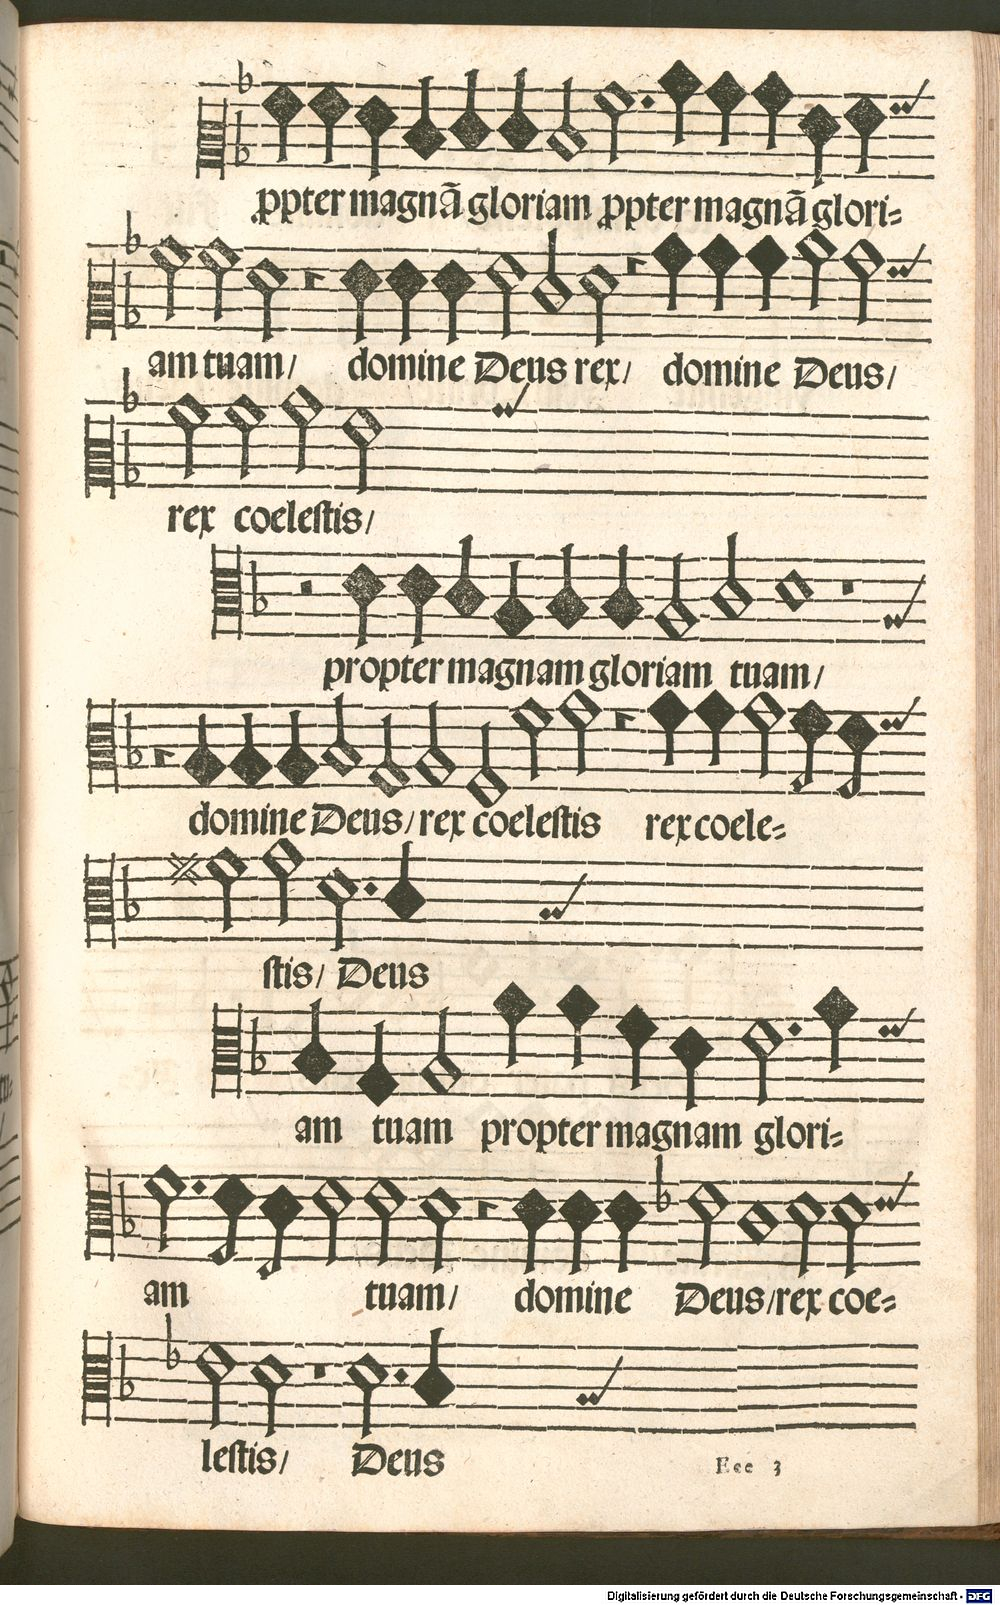 ꝓpter magnã gloriam ꝓpter magnã glori=
am tuam/ domine Deus rex/ domine Deus/
rex coelestis/
propter magnam gloriam tuam/
domine Deus/ rex coelestis rex coele=
stis/ Deus
am tuam propter magnam glori=
am tuam/ domine Deus/rex coe=
lestis/ Deus
Eee 3
Digitalisierung gefördert durch die Deutsche Forschungsgemeinschaft - DFG